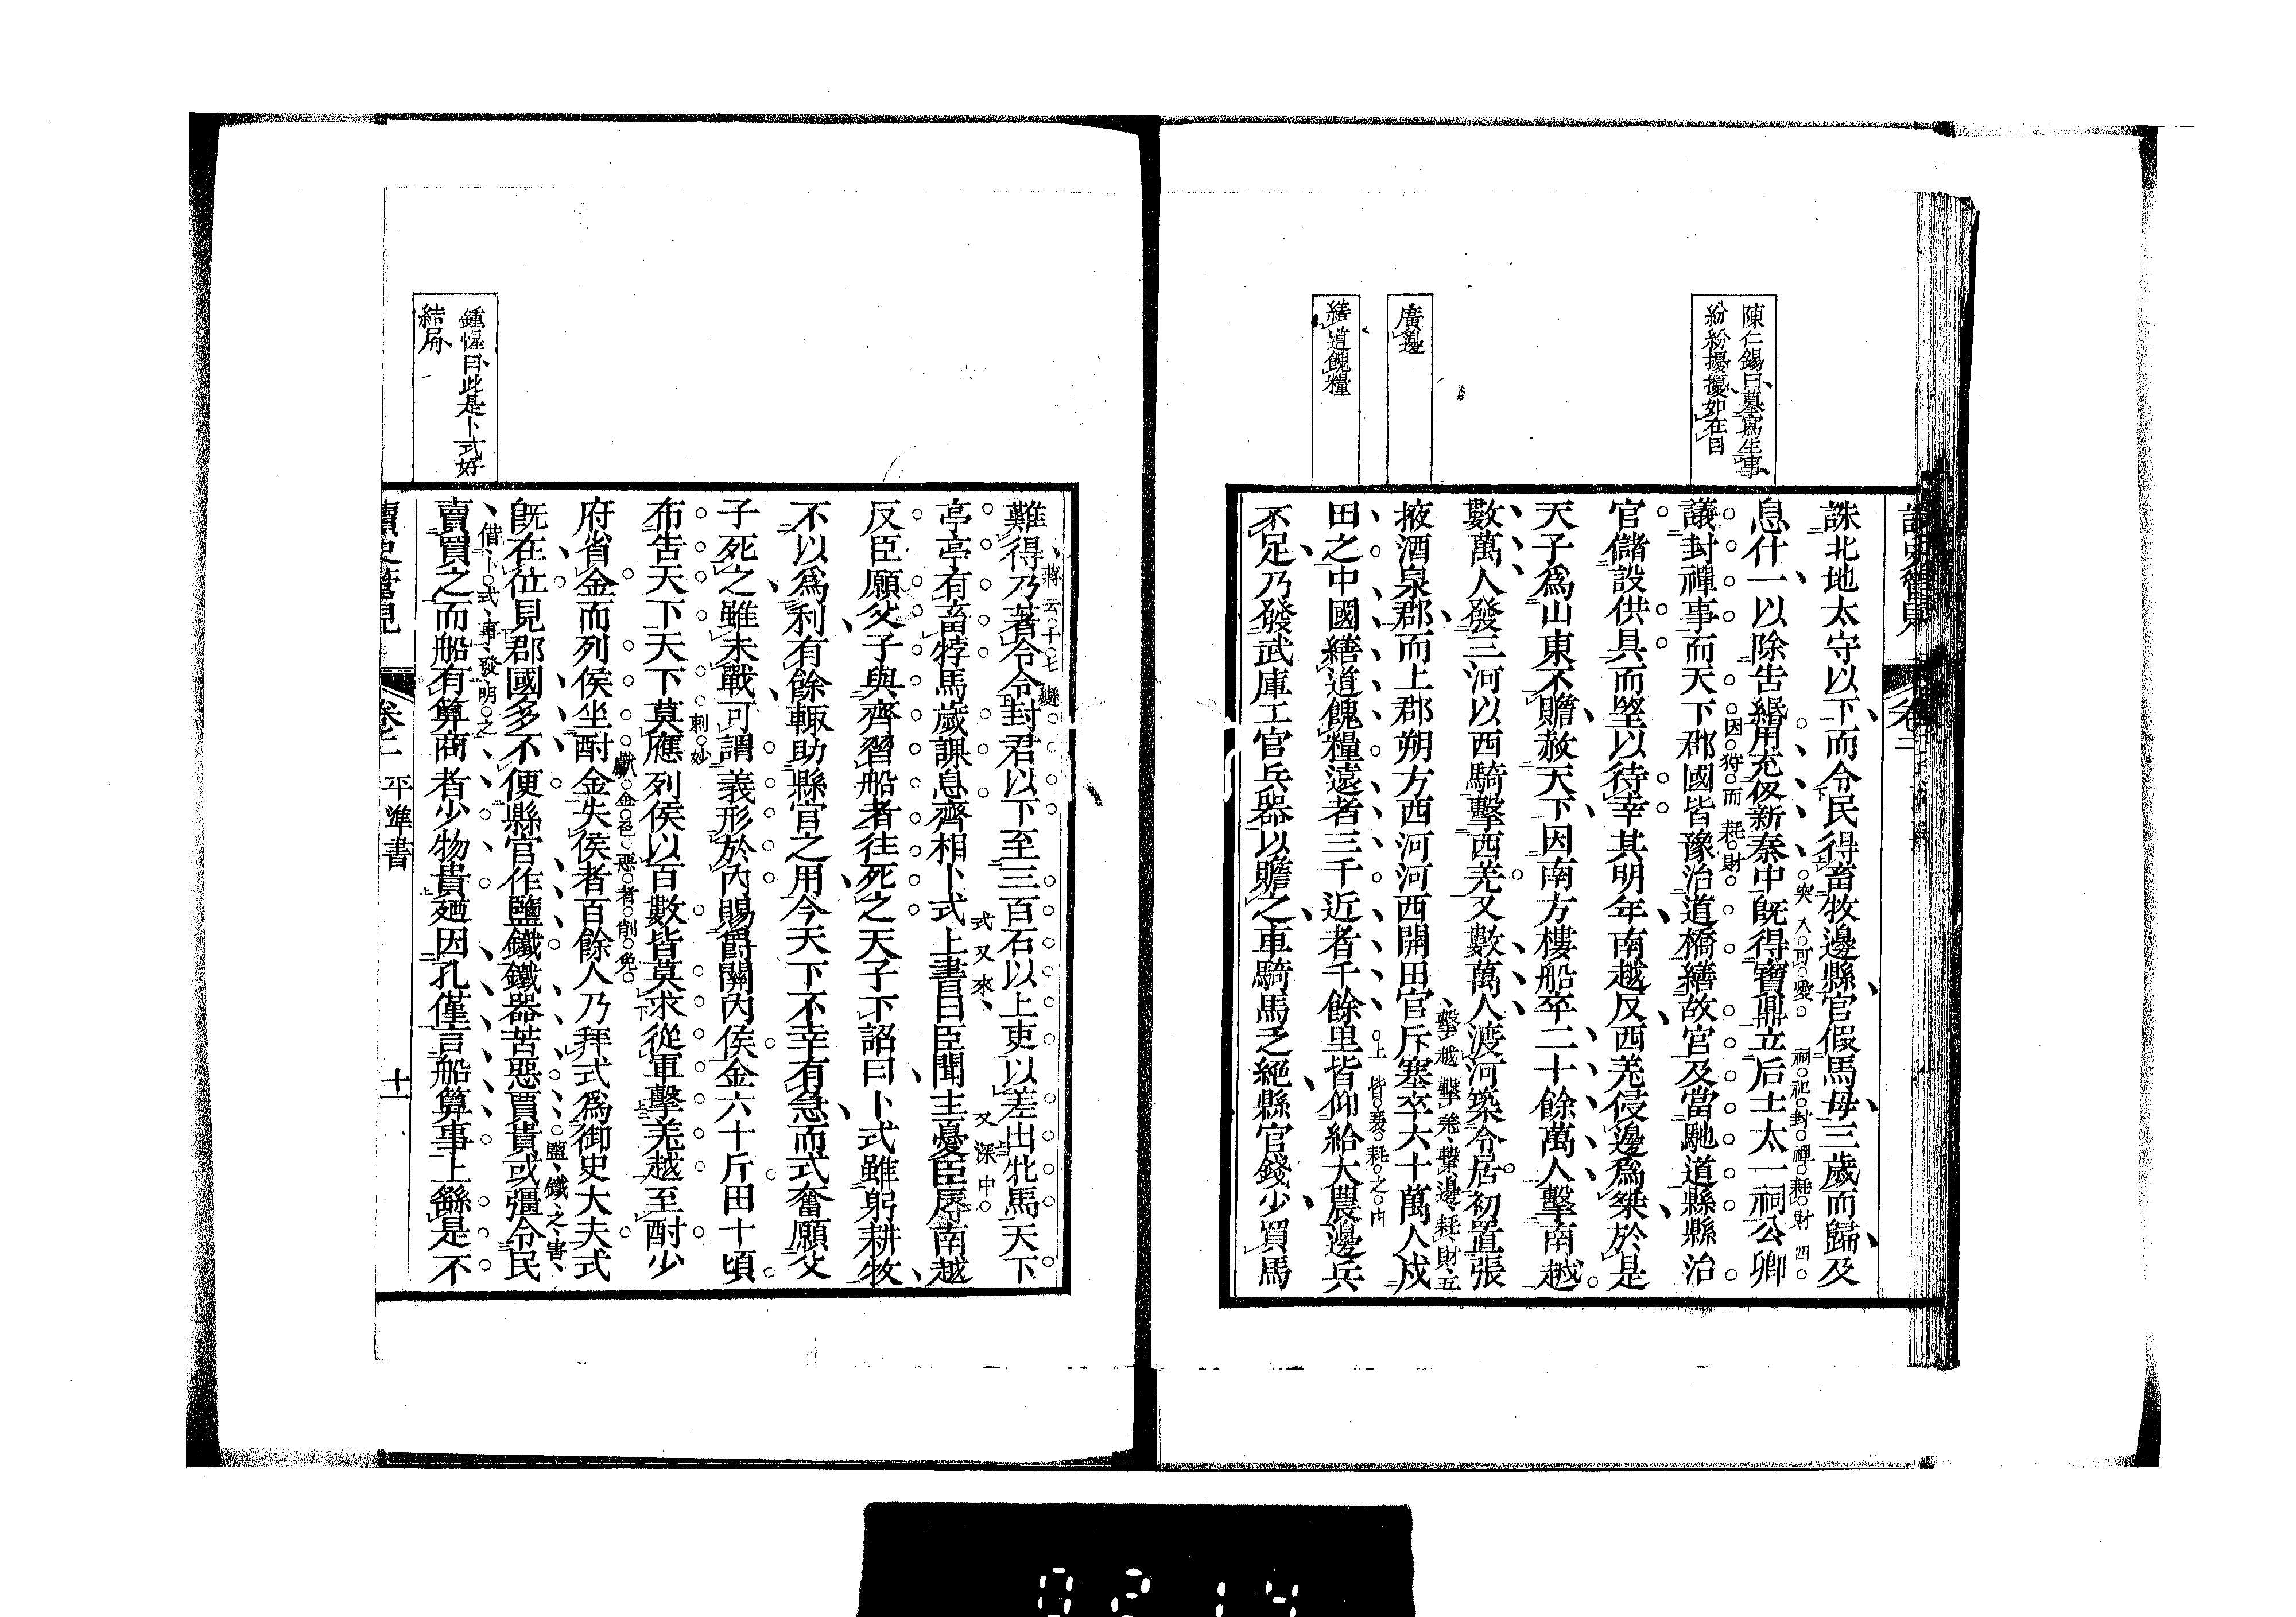 陳仁錫曰摹寫生事
紛紛擾擾如在目
廣邊
繕道餽糧
誅北地太守以下而令民得畜牧邊縣官假馬母三歲而歸及
突入可愛
祠祀封禪耗財四
息什一以除告緡用充仭新秦中既得寶鼎立后土太一祠公卿
因狩而耗財
議封禪事而天下郡國皆豫治道橋繕故官及當馳道縣縣治
官儲設供具而望以待幸其明年南越反西羌侵邊爲桀於是
天子爲山東不贍赦天下因南方樓船卒二十餘萬人擊南越
數萬人發三河以西騎擊西羌又數萬人渡河築令居初置張
擊越擊羌繫邊耗財五
掖酒泉郡而上郡朔方西河河西開田官斥塞卒六十萬人戍
上皆裹耗之由
田之中國繕道餽糧遠者三千近者千餘里皆仰給大農邊兵
不足乃發武庫工官兵器以贍之車騎馬乏絕縣官錢少買馬
蔣云十七變
難得乃著令令封君以下至三百石以上吏以差出牝馬天下
式又來
又深中
亭亭有畜牸馬歲課息齊相卜式上書曰臣聞主憂臣辱南越
反臣願父子與齊習船者往死之天子下詔曰卜式雖躬耕牧
不以爲利有餘輙助縣官之用今天下不幸有急而式奮願父
子死之雖未戰可謂義形於內賜爵關內侯金六十斤田十頃
刺妙
布告天下天下莫應列侯以百數皆莫求從軍擊羌越至酎少
獻金色惡者削免
府省金而列侯坐酎金失侯者百餘人乃拜式爲御史大夫式
鹽鐵之害
既在位見郡國多不便縣官作鹽鐵鐵器苦惡賈貴或彊令民
借卜式事發明之
賣買之而船有算商者少物貴廼因孔僅言船算事上繇是不
鍾惺曰此是卜式好
結局
讀史管見
卷二
平準書
十一